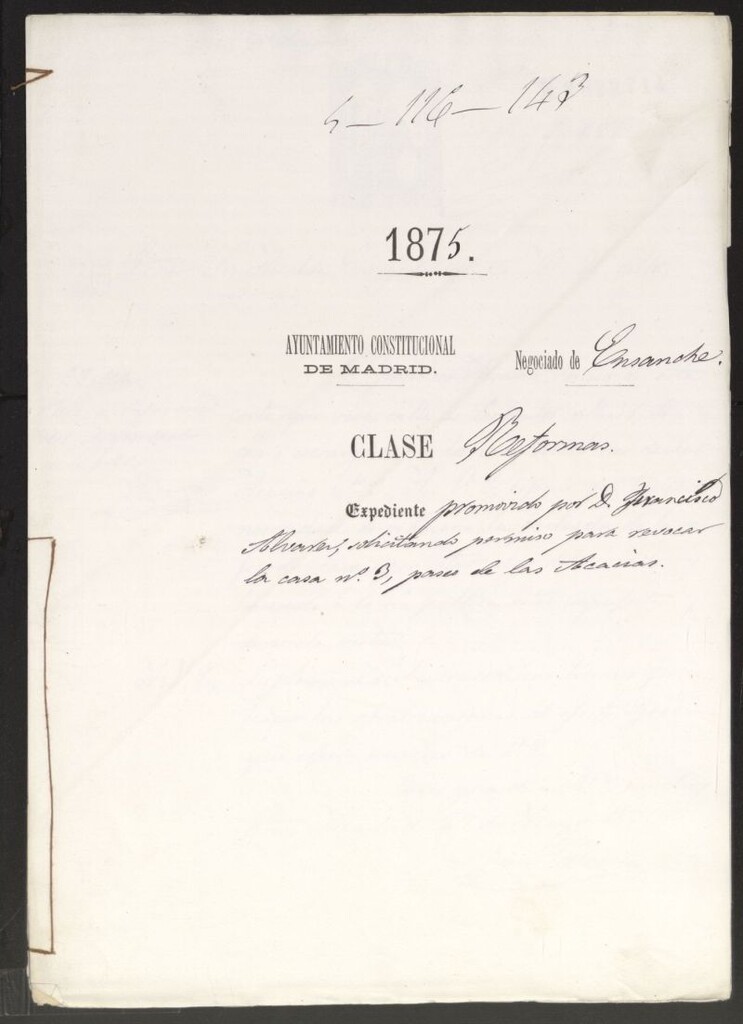 5 — 116 — 143
1875.
AYUNTAMIENTO CONSTITUCIONAL
DE MADRID.
Negociado de Ensanche.
CLASE Reformas.
Expediente promovido por D. Francisco
Alvarez, solicitando permiso para revocar
la casa nº. 3, paseo de las Acacias.